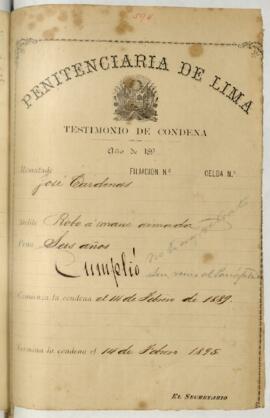 594
PENITENCIARIA DE LIMA
TESTIMONIO DE CONDENA
Año de 189
Rematado FILIACION N.° CELDA N.°
José Cardenas
Delito Robo á mano armada
Pena Seis años
Cumplió
Comienza la condena el 14 de Febrero de 1889.
Termina la condena el 14 de Febrero 1895
EL SECRETARIO